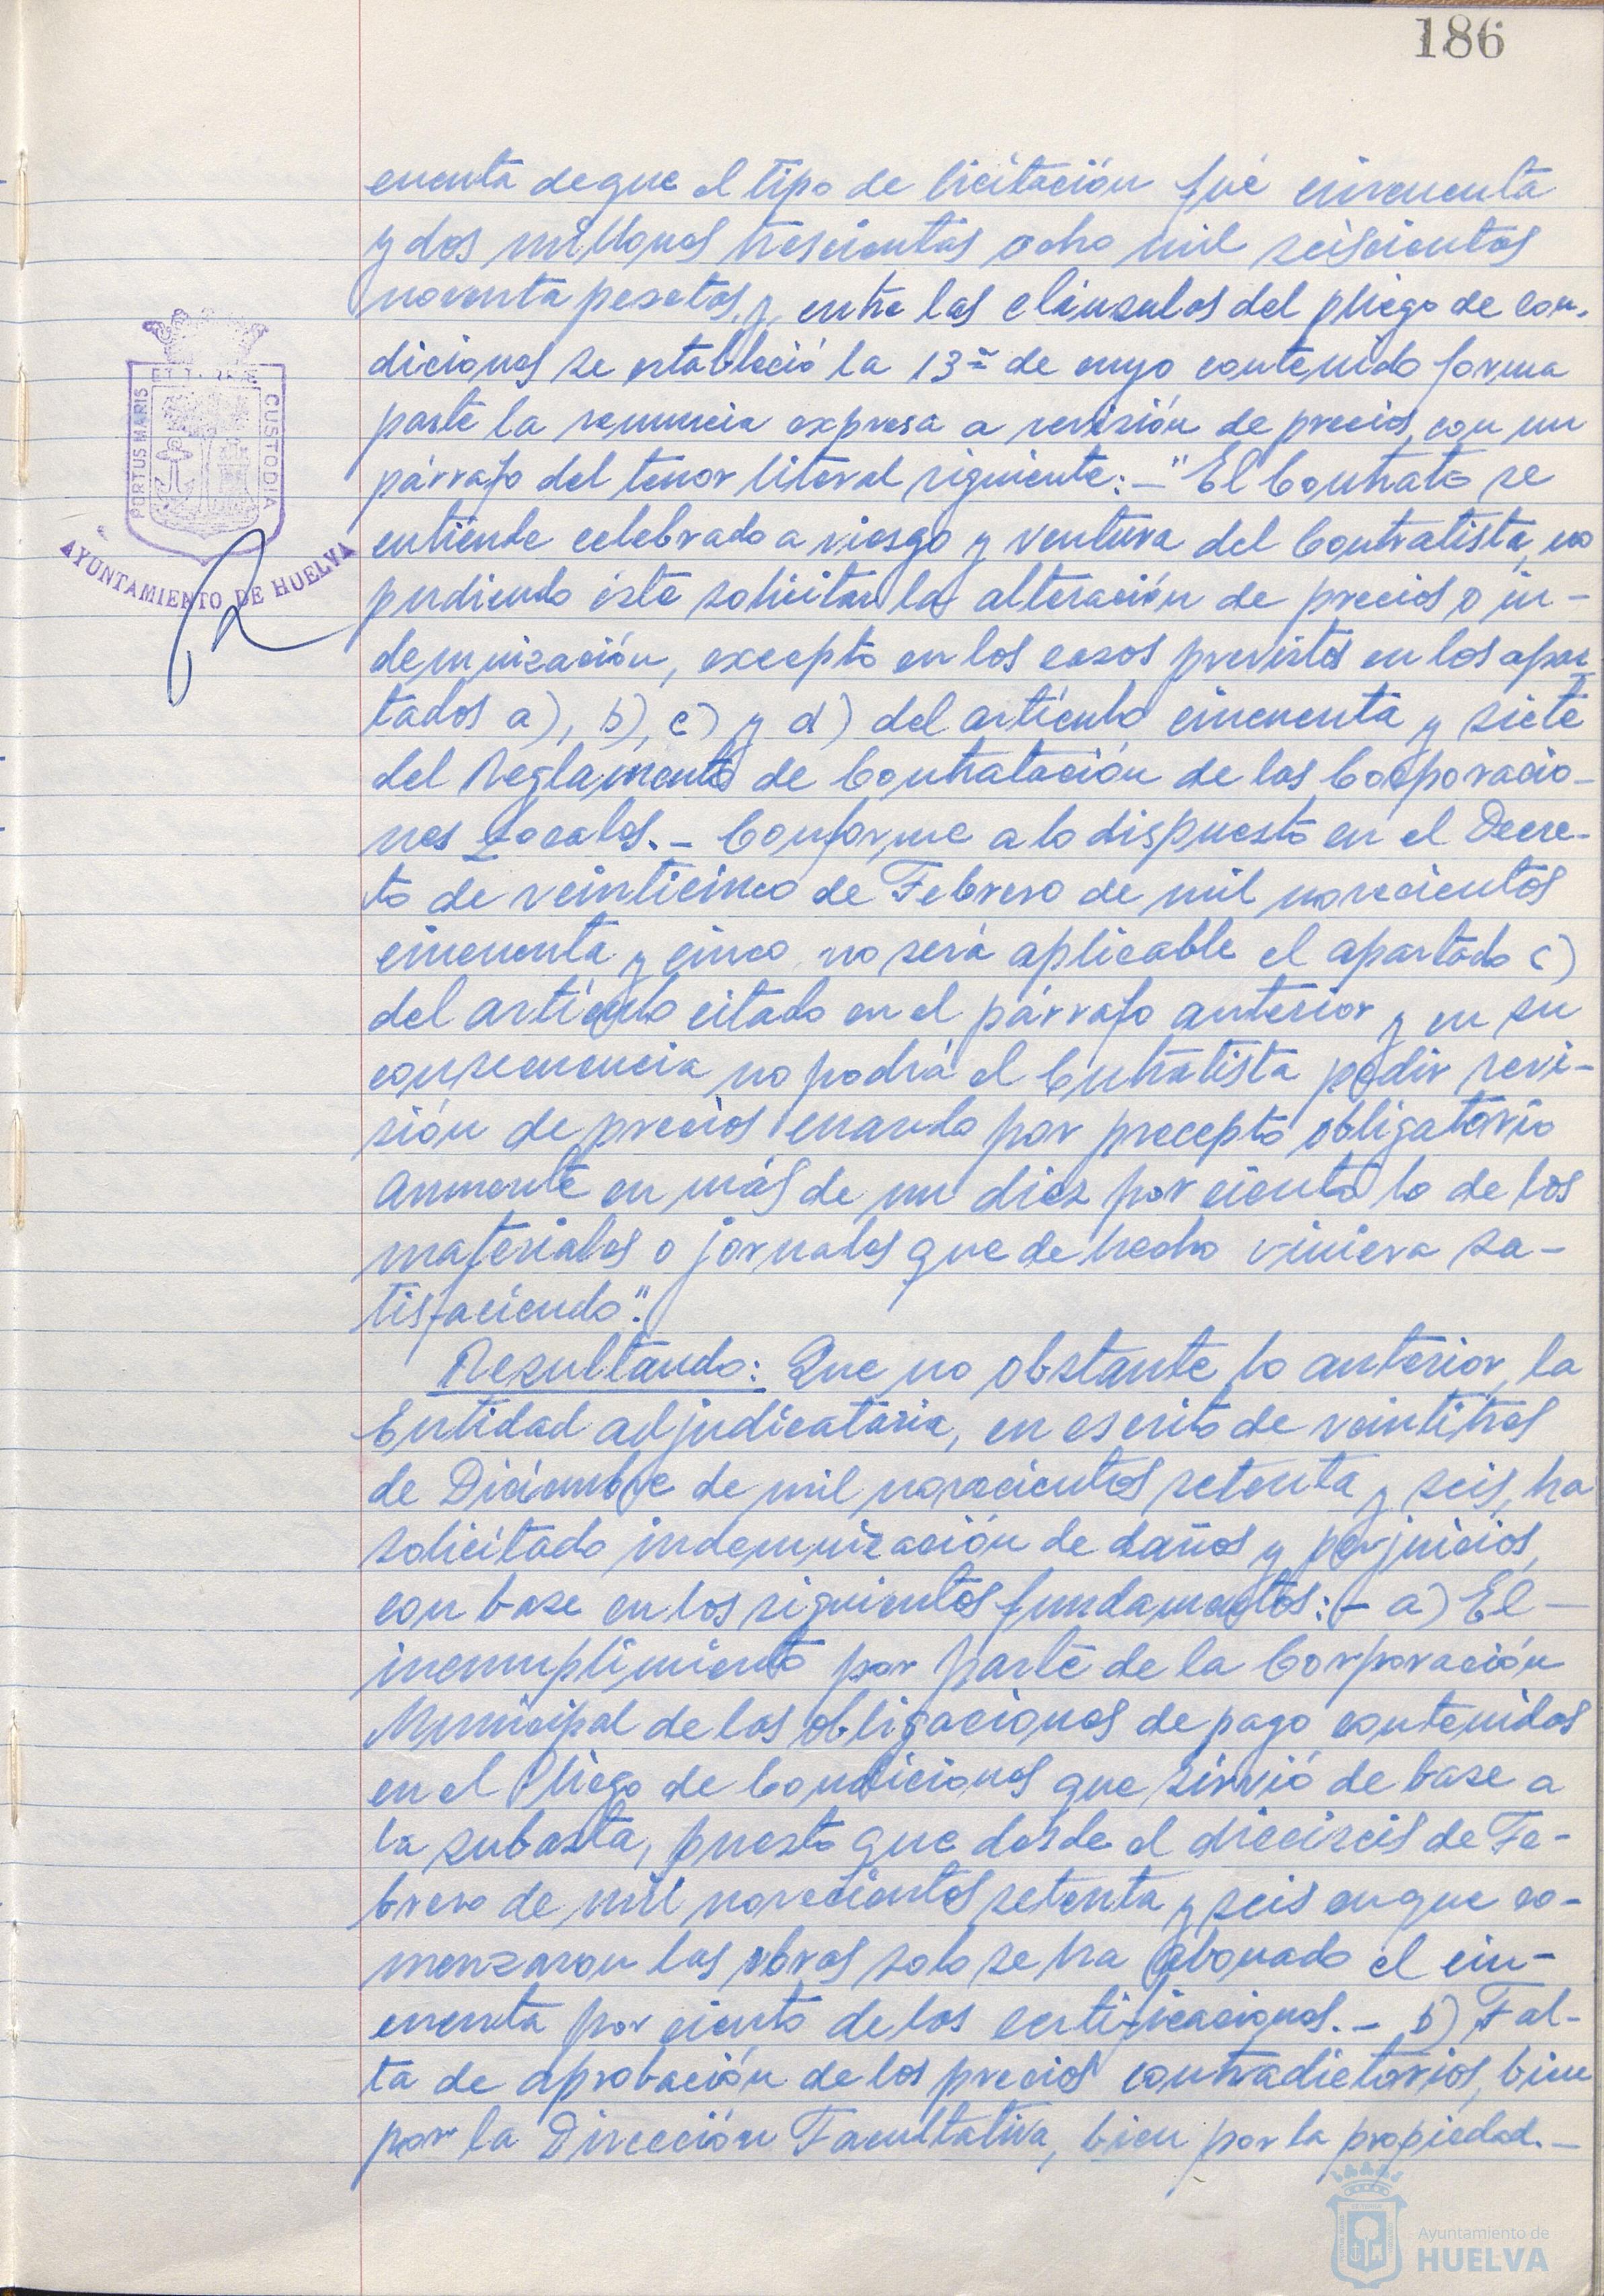 186
cuenta de que el tipo de licitación fué cincuenta
y dos millones trescientas ocho mil seiscientas
noventa pesetas, y, entre las cláusulas del pliego de con-
diciones se estableció la 13ª de cuyo contenido forma
parte la renuncia expresa a revisión de precios, con un
párrafo del tenor literal siguiente: - "El Contrato se
entiende celebrado a riesgo y ventura del Contratista, no
pudiendo éste solicitar la alteración de precios o in-
demnización, excepto en los casos previstos en los apar-
tados a), b), c) y d) del artículo cincuenta y siete
del Reglamento de Contratación de las Corporacio-
nes Locales. - Conforme a lo dispuesto en el Decre-
to de veinticinco de Febrero de mil novecientos
cincuenta y cinco no será aplicable el apartado c)
del artículo citado en el párrafo anterior y en su
consecuencia no podrá el Cntratista pedir revi-
sión de precios cuando por precepto obligatorio
aumente en más de un diez por ciento lo de los
materiales o jornales que de hecho viniera sa-
tisfaciendo".
Resultando: Que no obstante lo anterior, la
Entidad adjudicataria, en escrito de veintitres
de Diciembre de mil novecientos setenta y seis, ha
solicitado indemnización de daños y perjuicios,
con base en los siguientes fundamentos: - a) El -
incumplimiento por parte de la Corporación
Municipal de las obligaciones de pago contenidas
en el Pliego de Condiciones que sirvió de base a
la subasta, puesto que desde el dieciseis de Fe-
brero de mil novecientos setenta y seis en que co-
menzaron las obras solo se ha abonado el cin-
cuenta por ciento de las certificaciones. - b) Fal-
ta de aprobación de los precios contradictorios, bien
por la Dirección Facultativa, bien por la propiedad. -
PORTUS MARIS
CUSTODIA
AYUNTAMIENTO DE HUELVA
Ayuntamiento de
HUELVA